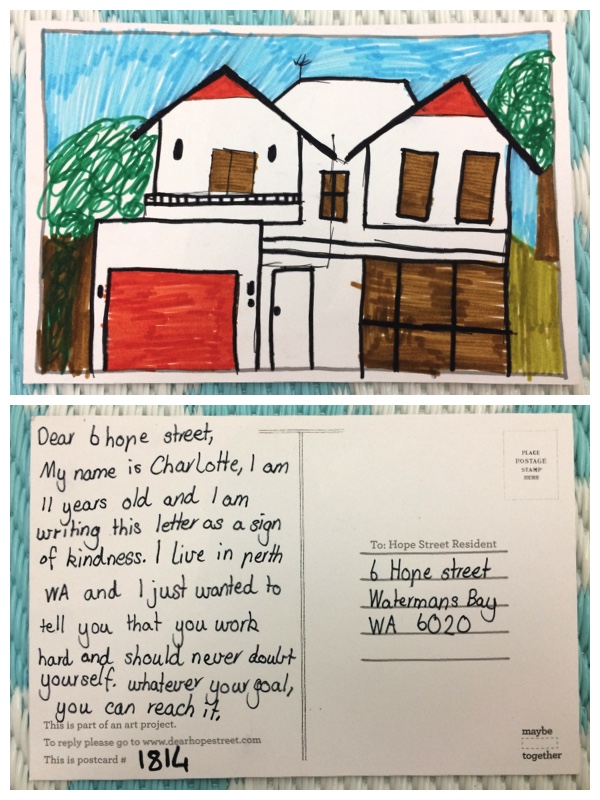 Dear 6 hope street,
My name is Charlotte, I am
11 years old and I am
writing this letter as a sign
of kindness. I live in perth
WA and I just wanted to
tell you that you work
hard and should never doubt
yourself. whatever your goal,
you can reach it.
This is part of an art project.
To reply please go to www.dearhopestreet.com
This is postcard # 1814
PLACE
POSTAGE
STAMP
HERE
To: Hope Street Resident
6 Hope street
Watermans Bay
WA 6020
maybe
together